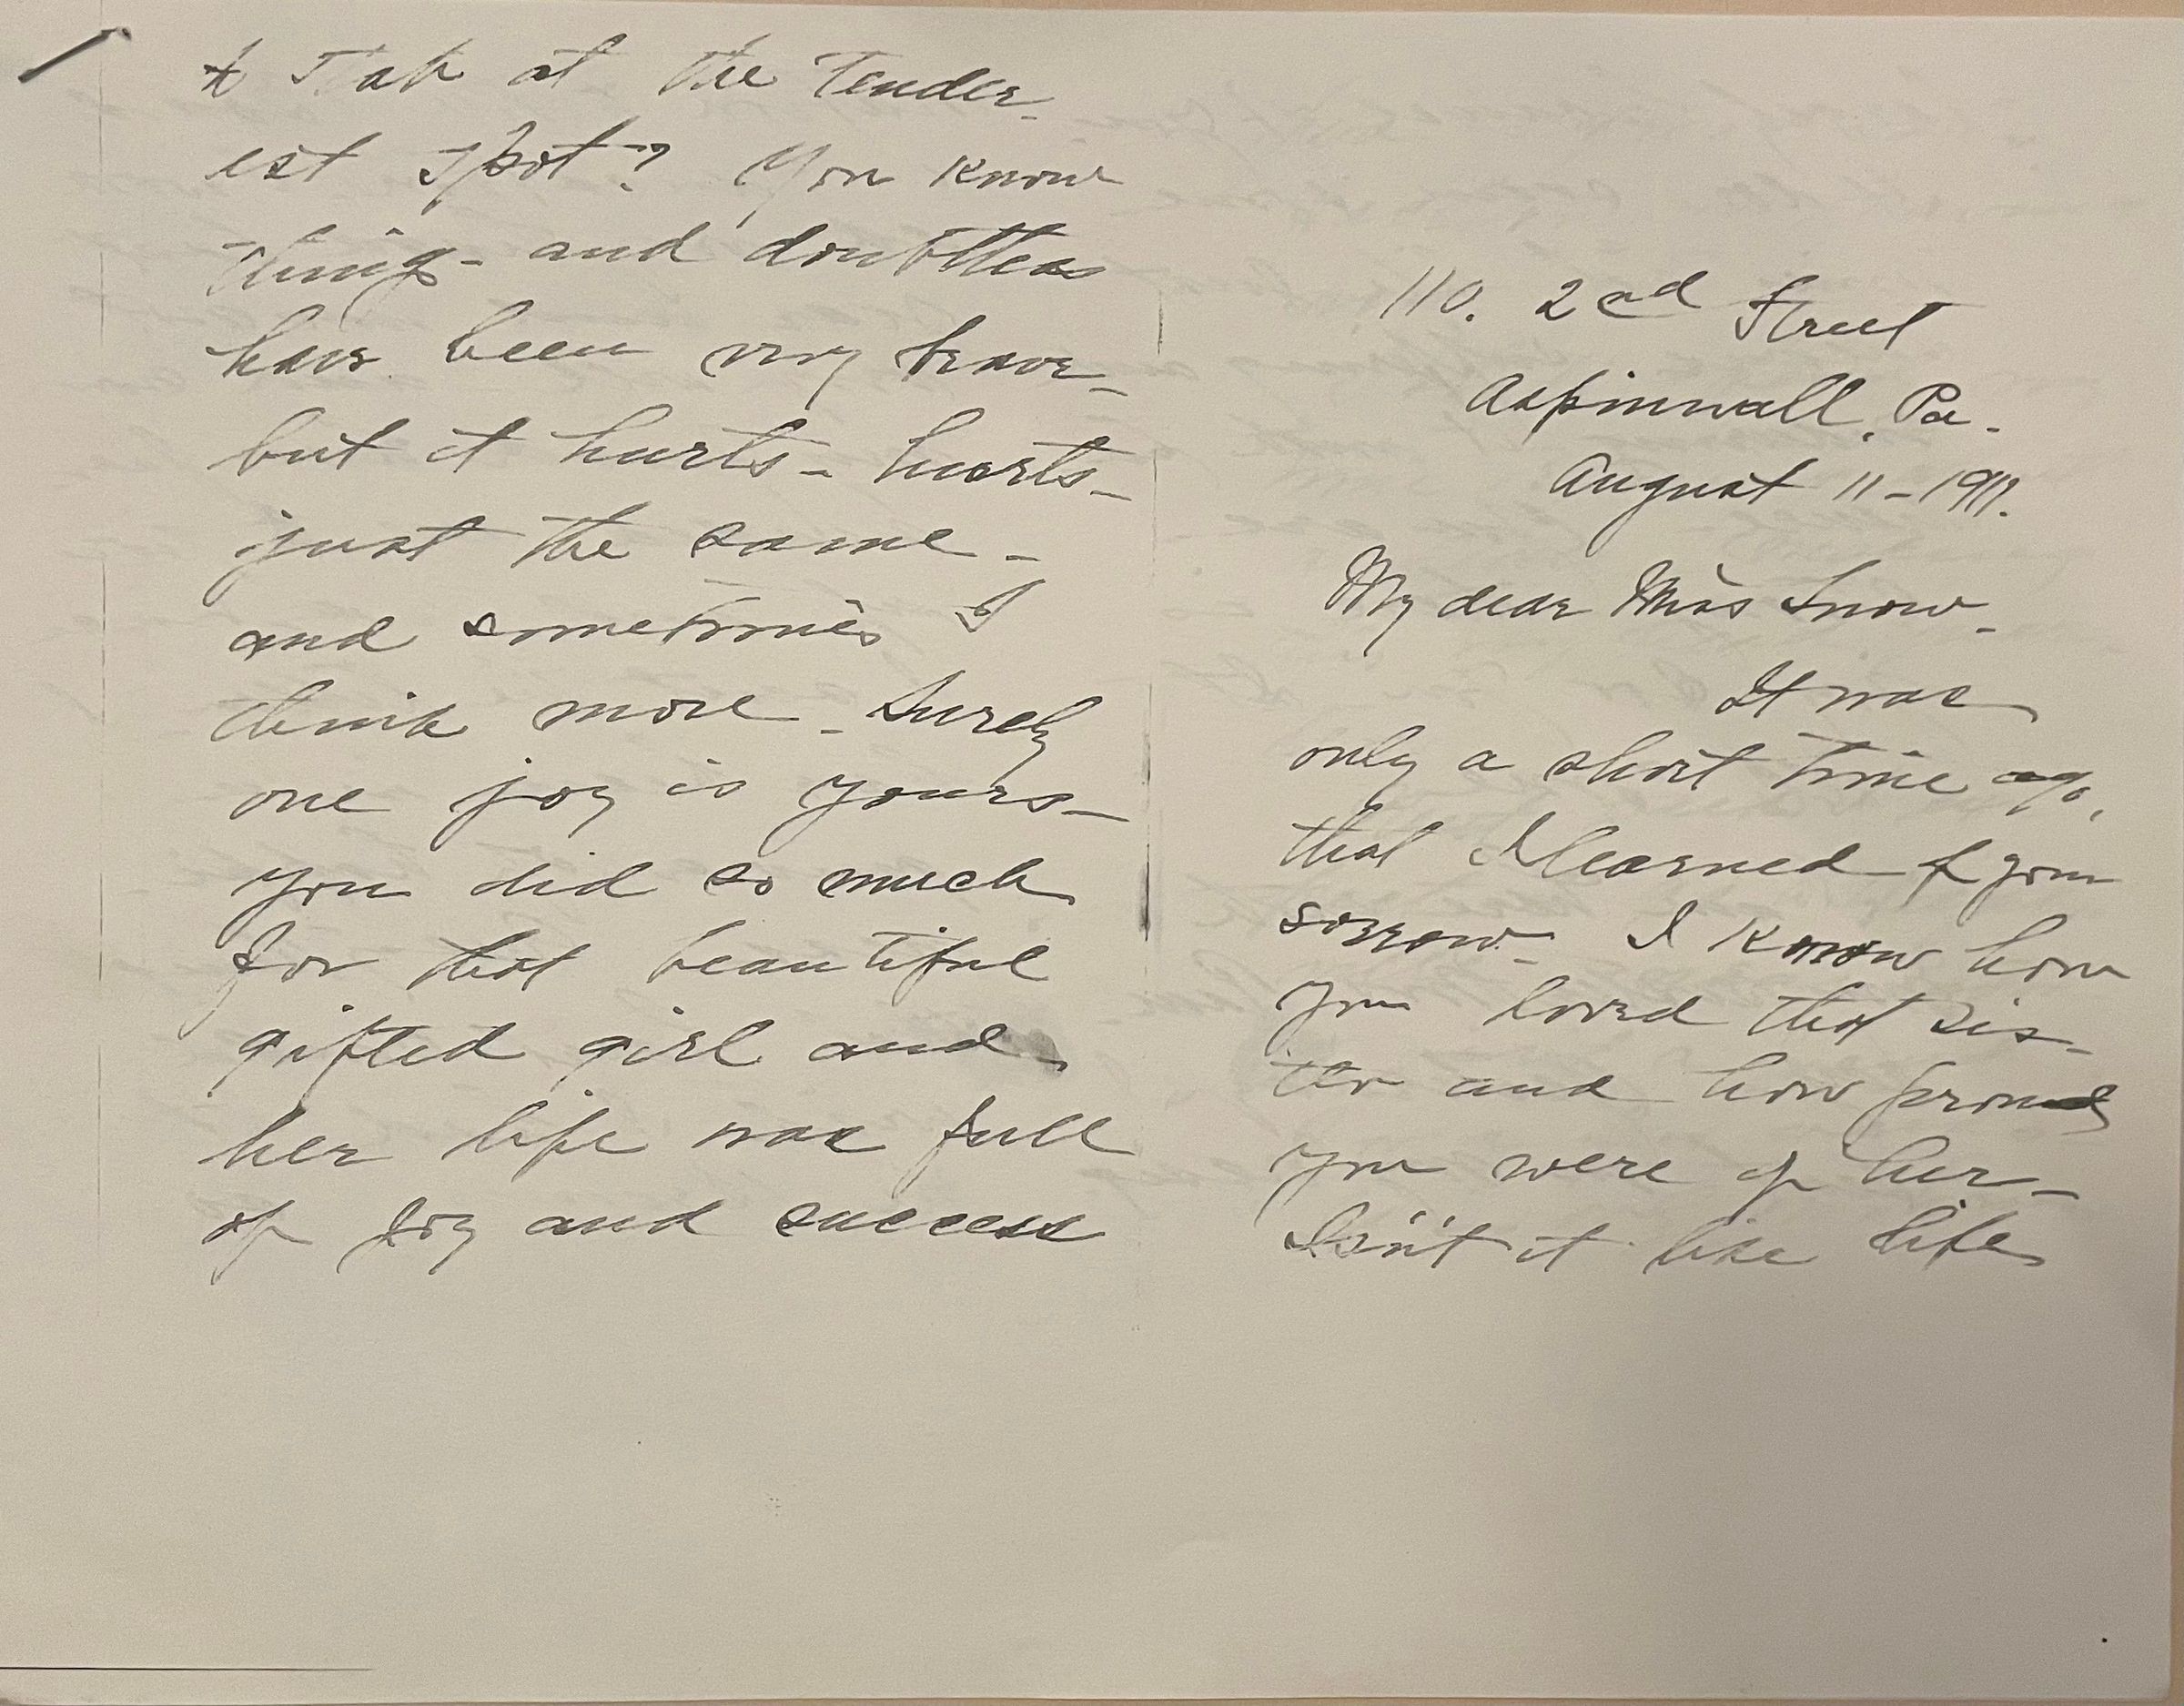 110. 2nd Street
Aspinwall, Pa.
August 11-1911.
My dear Miss Snow-
It was
only a short time ago,
that I learned of your
sorrow- I know how
you loved that sis-
ter and how proud
you were of her-
Isn't it like life
to stab at the tender-
est spot? You know
things- and doubtless
have been very brave-
but it hurts- hurts-
just the same-
and sometimes I
think more- Surely
one joy is yours-
you did so much
for that beautiful
gifted girl and
her life was full
of joy and success